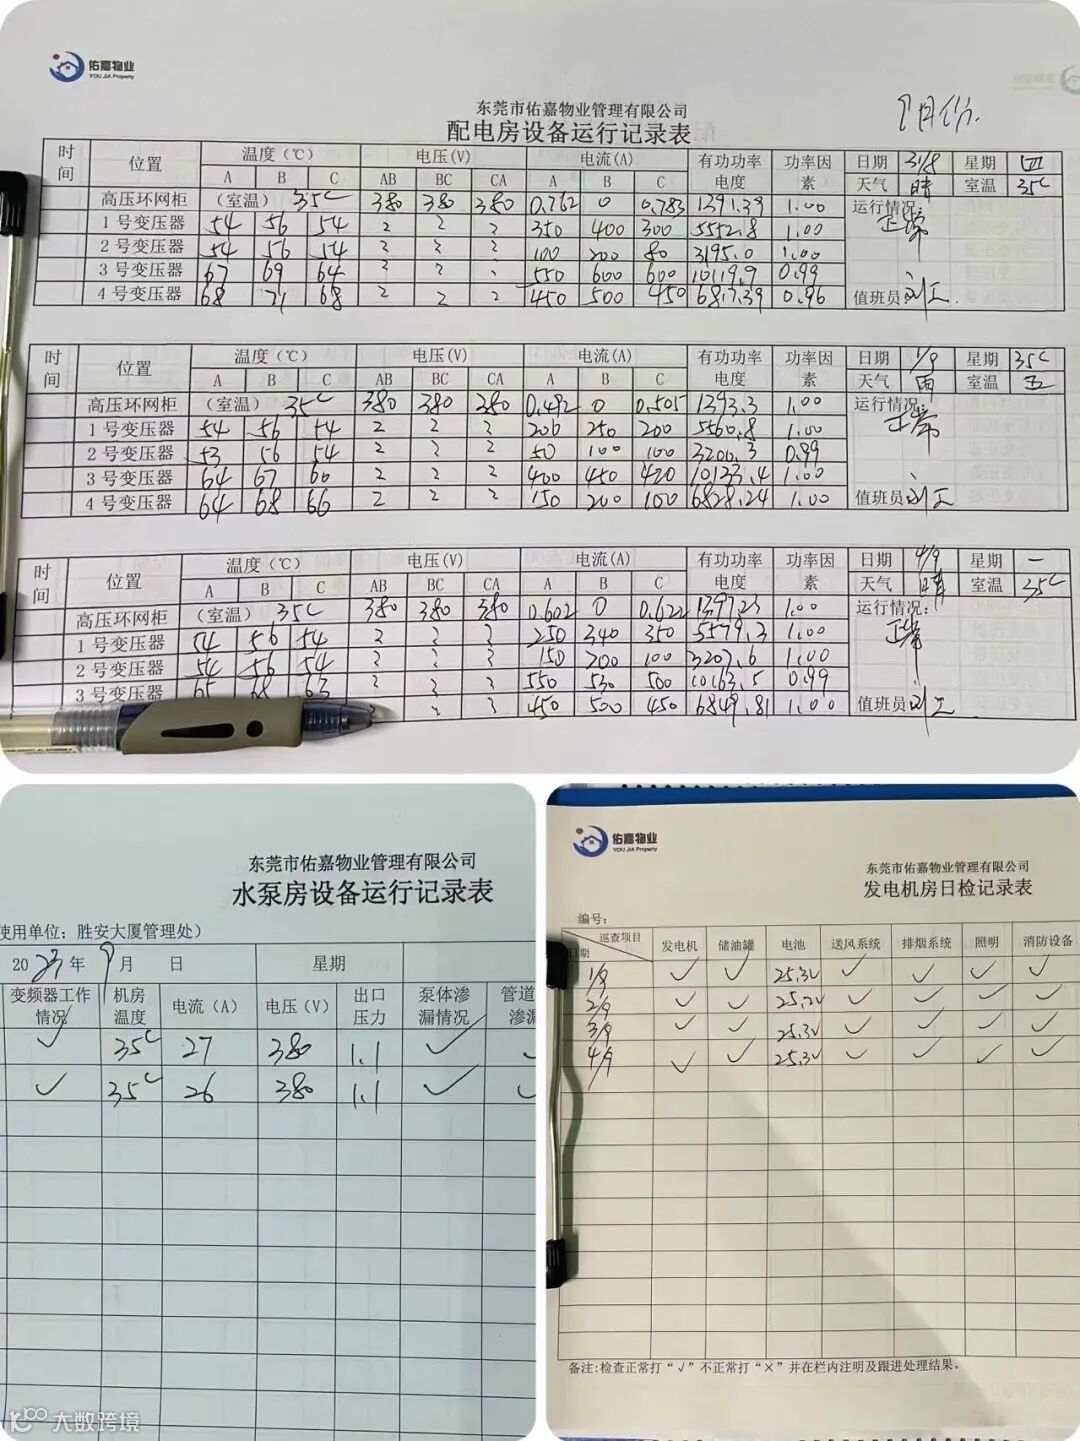 佑嘉物业
YOU JIA Property
东莞市佑嘉物业管理有限公司
配电房设备运行记录表
9月份.
时间 位置 温度(℃) 电压(V) 电流(A) 有功功率电度 功率因素 日期 31/8 星期 四
A B C AB BC CA A B C 天气 晴 室温 35℃
高压环网柜 (室温) 35℃ 380 380 380 0.762 0 0.783 1391.39 1.00 运行情况:
1号变压器 54 56 54 2 2 2 350 400 300 5552.8 1.00 正常
2号变压器 54 56 54 2 2 2 100 200 80 3195.0 1.00
3号变压器 67 69 64 2 2 2 550 600 600 10119.9 0.99
4号变压器 68 71 68 2 2 2 450 500 450 6817.39 0.96 值班员 刘工.
时间 位置 温度(℃) 电压(V) 电流(A) 有功功率电度 功率因素 日期 1/9 星期 35℃
A B C AB BC CA A B C 天气 雨 室温 五
高压环网柜 (室温) 35℃ 380 380 380 0.492 0 0.505 1393.3 1.00 运行情况:
1号变压器 54 56 54 2 2 2 200 250 200 5560.8 1.00 正常
2号变压器 53 56 54 2 2 2 50 100 100 3200.3 0.99
3号变压器 64 67 60 2 2 2 400 450 420 10133.4 1.00
4号变压器 64 68 66 2 2 2 150 200 100 6828.24 1.00 值班员 刘工
时间 位置 温度(℃) 电压(V) 电流(A) 有功功率电度 功率因素 日期 4/9 星期 一
A B C AB BC CA A B C 天气 晴 室温 35℃
高压环网柜 (室温) 35℃ 380 380 380 0.602 0 0.622 1397.23 1.00 运行情况:
1号变压器 54 56 54 2 2 2 250 340 350 5579.3 1.00 正常
2号变压器 54 56 54 2 2 2 150 200 100 3207.6 1.00
3号变压器 65 68 63 2 2 2 550 530 500 10163.5 0.99
2 2 2 450 500 450 6849.81 1.00 值班员 刘工
东莞市佑嘉物业管理有限公司
水泵房设备运行记录表
使用单位: 胜安大厦管理处)
2023年 9月 日 星期
变频器工作情况 机房温度 电流(A) 电压(V) 出口压力 泵体渗漏情况 管道渗漏
✓ 35℃ 27 380 1.1 ✓ ✓
✓ 35℃ 26 380 1.1 ✓ ✓
佑嘉物业
YOU JIA Property
东莞市佑嘉物业管理有限公司
发电机房日检记录表
编号:
巡查项目 日期 发电机 储油罐 电池 送风系统 排烟系统 照明 消防设备
1/9 ✓ ✓ 25.3V ✓ ✓ ✓ ✓
2/9 ✓ ✓ 25.2V ✓ ✓ ✓ ✓
3/9 ✓ ✓ 25.3V ✓ ✓ ✓ ✓
4/9 ✓ ✓ 25.3V ✓ ✓ ✓ ✓
备注:检查正常打“√”不正常打“×”并在栏内注明及跟进处理结果。
大数跨境